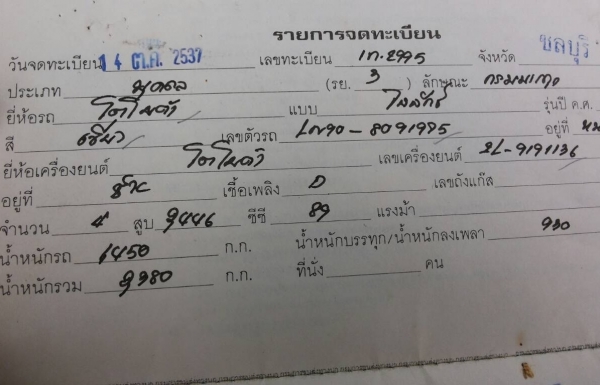 รายการจดทะเบียน
วันจดทะเบียน 14 ต.ค. 2537 เลขทะเบียน 2995 จังหวัด ชลบุรี
ประเภท (รย. 3 ) ลักษณะ
ยี่ห้อรถ โตโยต้า แบบ ไฮลักซ์ รุ่นปี ค.ศ.
สี เขียว เลขตัวรถ LN90-8091995 อยู่ที่
ยี่ห้อเครื่องยนต์ โตโยต้า เลขเครื่องยนต์ 2L-9191136
อยู่ที่ ซ้าย เชื้อเพลิง D เลขถังแก๊ส
จำนวน 4 สูบ 2446 ซีซี 89 แรงม้า
น้ำหนักรถ 1450 ก.ก. น้ำหนักบรรทุก/น้ำหนักลงเพลา 930
น้ำหนักรวม 2380 ก.ก. ที่นั่ง คน